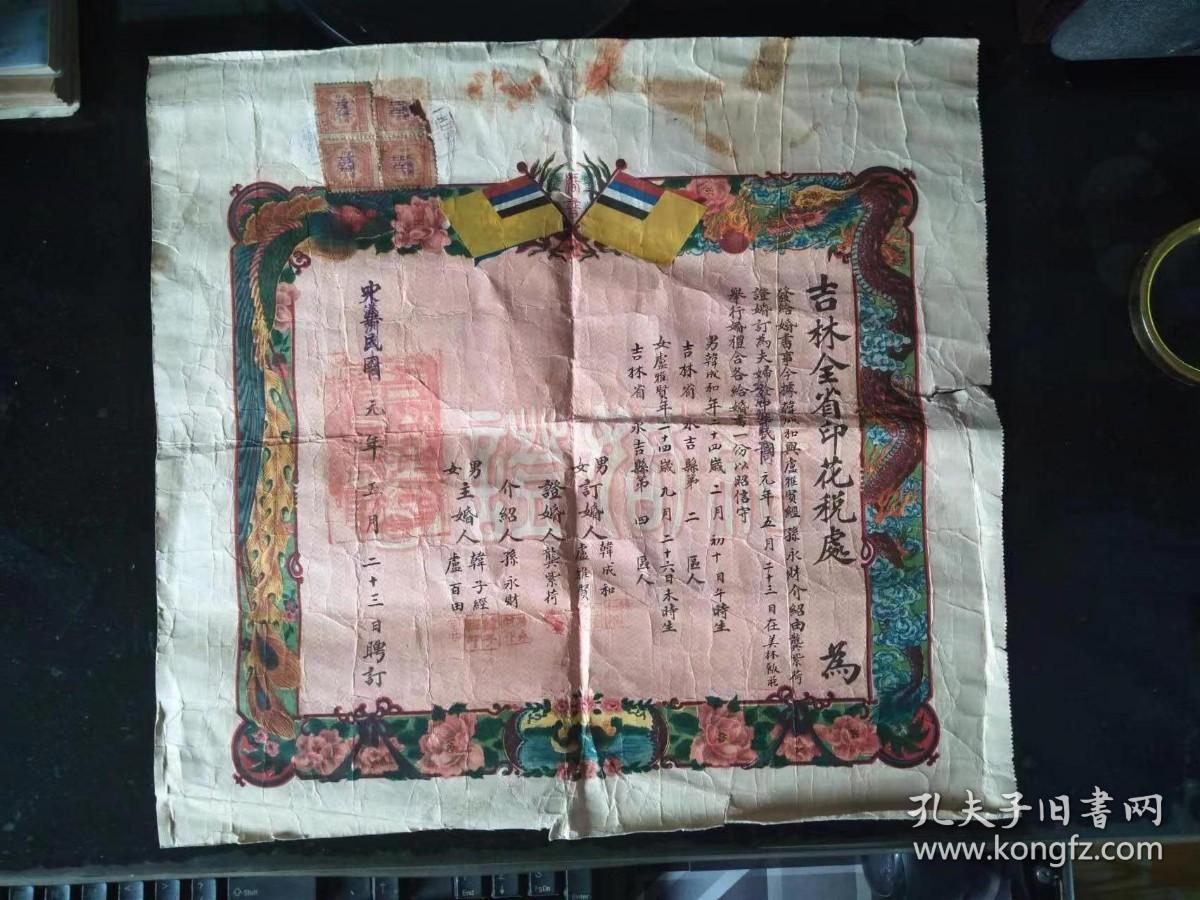 吉林全省印花税處 為
發給婚書事今據韓成和與盧雅賢經孫永財介紹由龔紫荷
證婚訂為夫婦於 民國元年五月二十三日在美林飯莊
舉行婚禮合各給婚書一份以昭信守
男韓成和年二十四歲二月初十日午時生
吉林省永吉縣第二區人
女盧雅賢年二十四歲九月二十六日未時生
吉林省永吉縣第四區人
男訂婚人韓成和
女訂婚人盧雅賢
證婚人龔紫荷
介紹人孫永財
男主婚人韓子經
女主婚人盧百田
民國元年五月二十三日聘訂
孔夫子旧书网
www.kongfz.com
Shift
End
PgDn
Enter